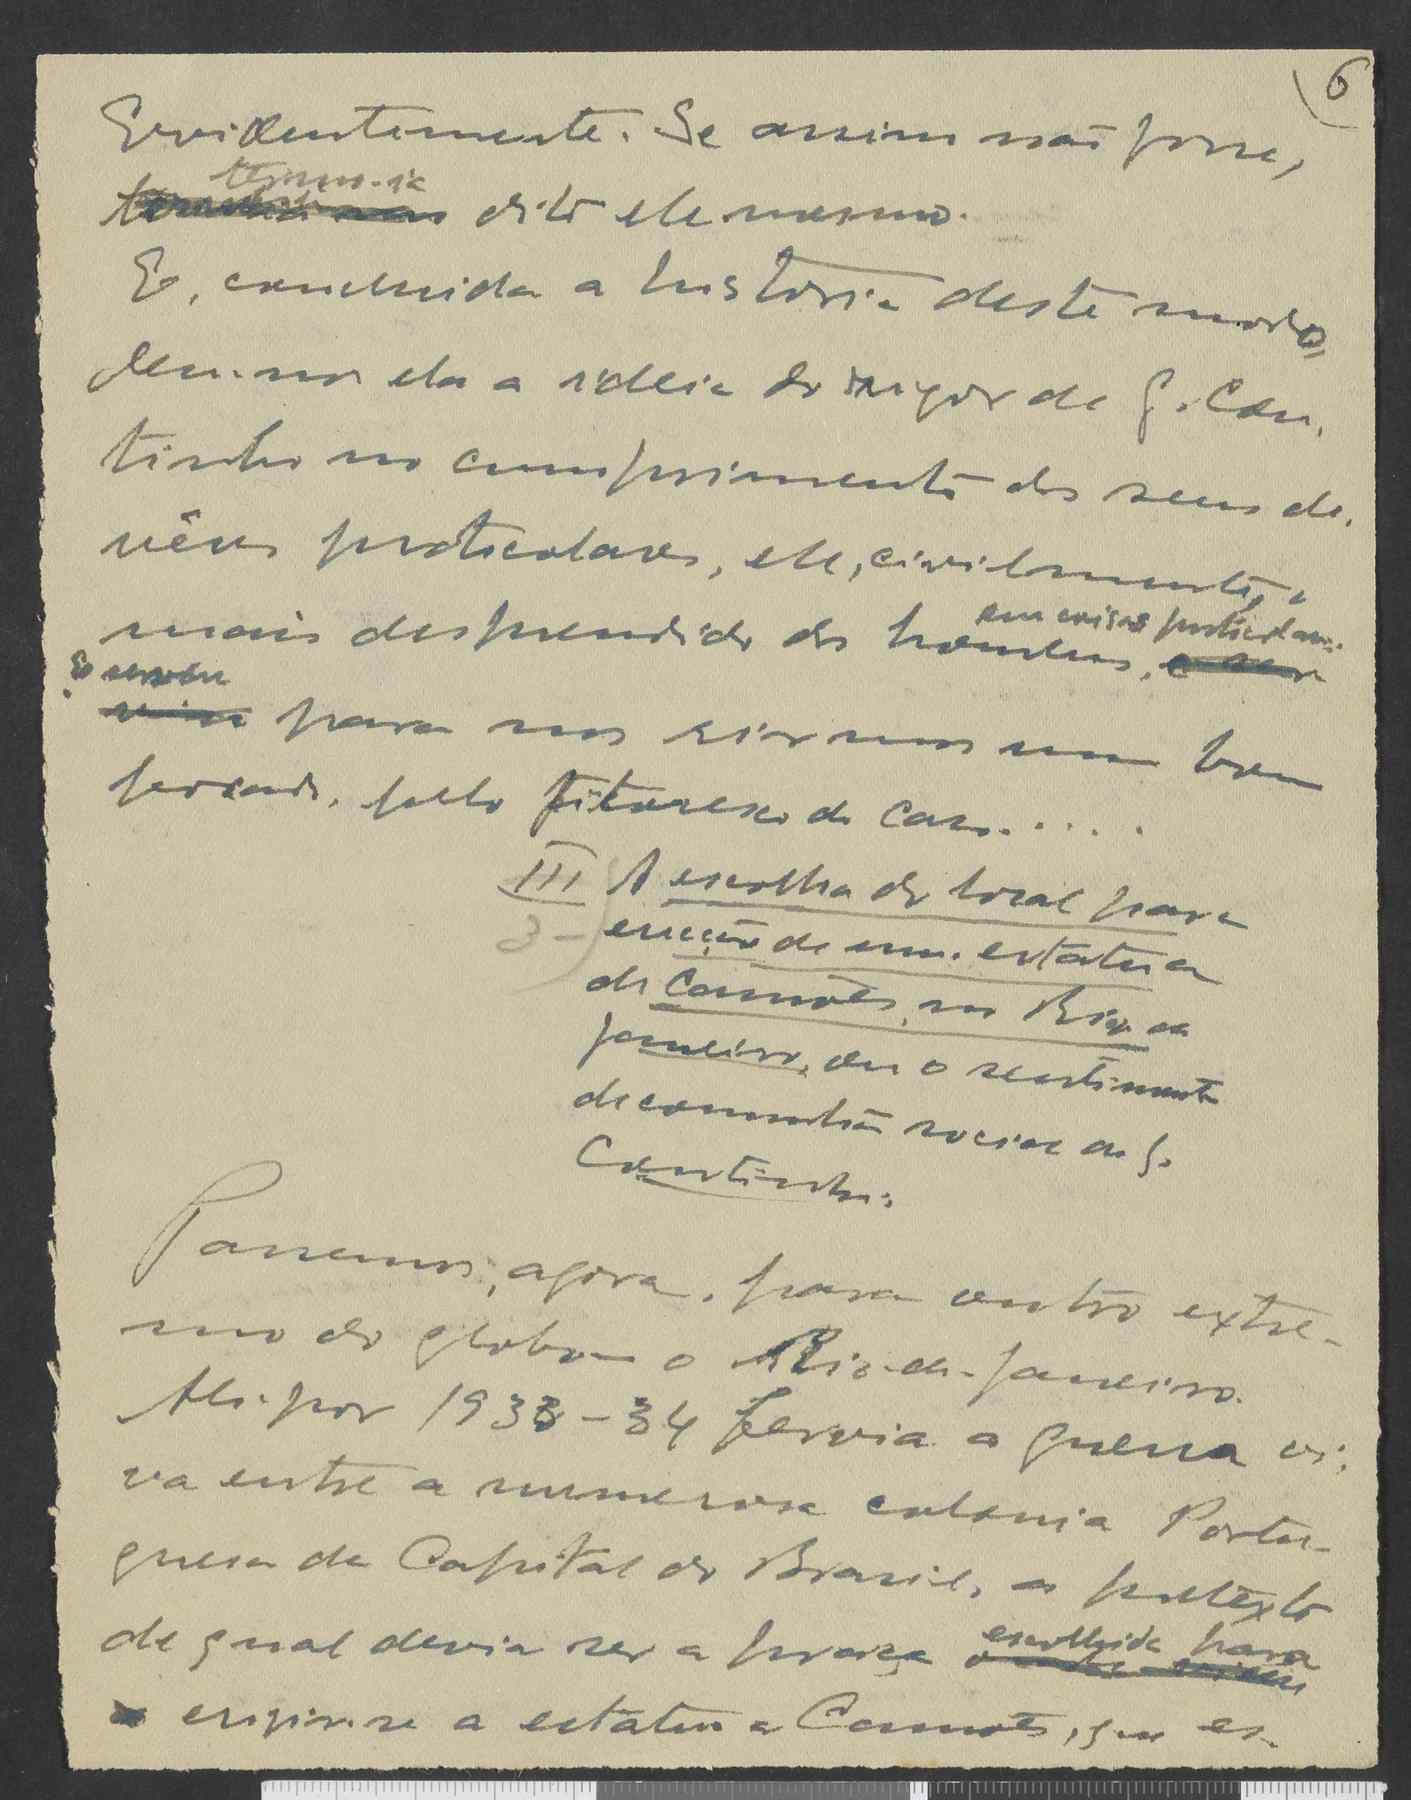 6
Evidentemente. Se assim não fosse,
dito ele mesmo.
E, concluida a historia deste modo,
deu-nos ela a ideia do rigor de G. Cou-
tinho no cumprimento dos seus de-
vêres particulares, ele, civilmente, o
mais desprendido dos homens, em coisas particulares.
E serviu para nos rirmos um bom
pedaço, pelo pitoresco do caso.....
III A escolha do local para
3- erecção de uma estatua
de Camões, no Rio de
Janeiro, ou o sentimento
de comunhão social de G.
Coutinho.
Passemos, agora, para outro extre-
mo do globo – o Rio-de-Janeiro.
Ali por 1933-34 fervia a guerra vi-
va entre a numerosa colonia Portu-
guesa da Capital do Brasil, a pretexto
de qual devia ser a praça escolhida para
erigir-se a estatua a Camões, que es-